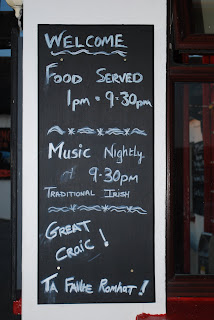 WELCOME
FOOD SERVED
1PM - 9-30PM
MUSIC NIGHTLY
at 9-30PM
TRADITIONAL IRISH
GREAT
CRAIC!
TA FAILTE ROMHAT!